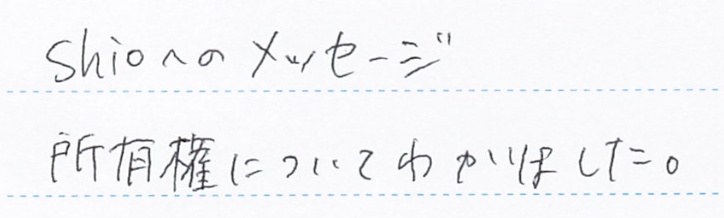 Shioへのメッセージ
所有権についてわかりました。